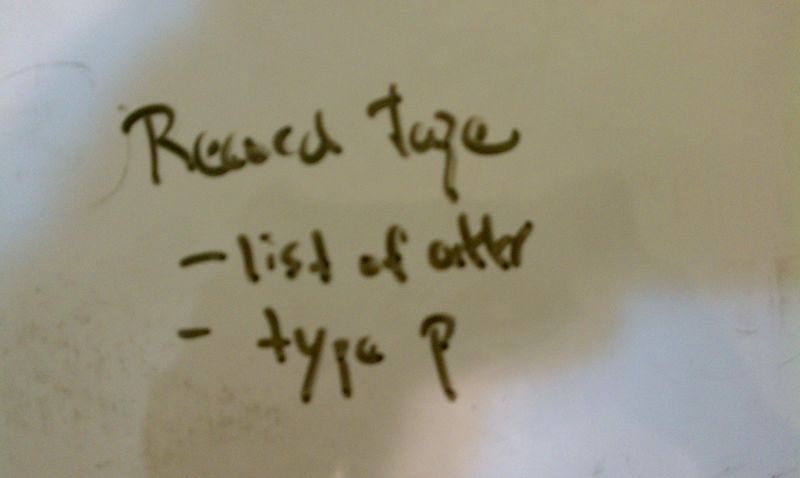 Record type
- list of attr
- type P